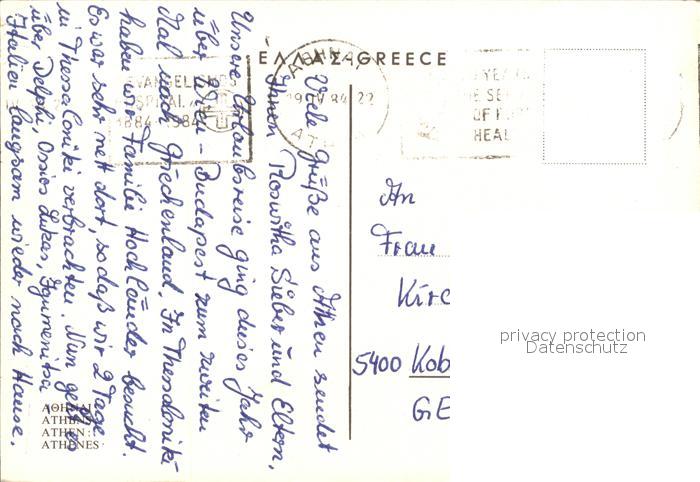 ΕΛΛΑΣ-GREECE
EVANGELISMOS
HOSPITAL
1884 1984
19 IV 84 22
YEARS
OF
HEAL
Viele Grüße aus Athen sendet
Ihnen Roswitha Sieber und Eltern.
Unsere Urlaubsreise ging dieses Jahr
über Wien - Budapest zum zweiten
Mal nach Griechenland. In Thessaloniki
haben wir Familie Hochländer besucht.
Es war sehr nett dort, sodaß wir 2 Tage
in Thessaloniki verbrachten. Nun geht es
über Delphi, Osios Lukas, Igumenitsa
Italien langsam wieder nach Hause.
An
Frau
Kirc
5400 Kob
GE
ΑΘΗΝΑΙ
ATHENS
ATHEN
ATHENES
privacy protection
Datenschutz